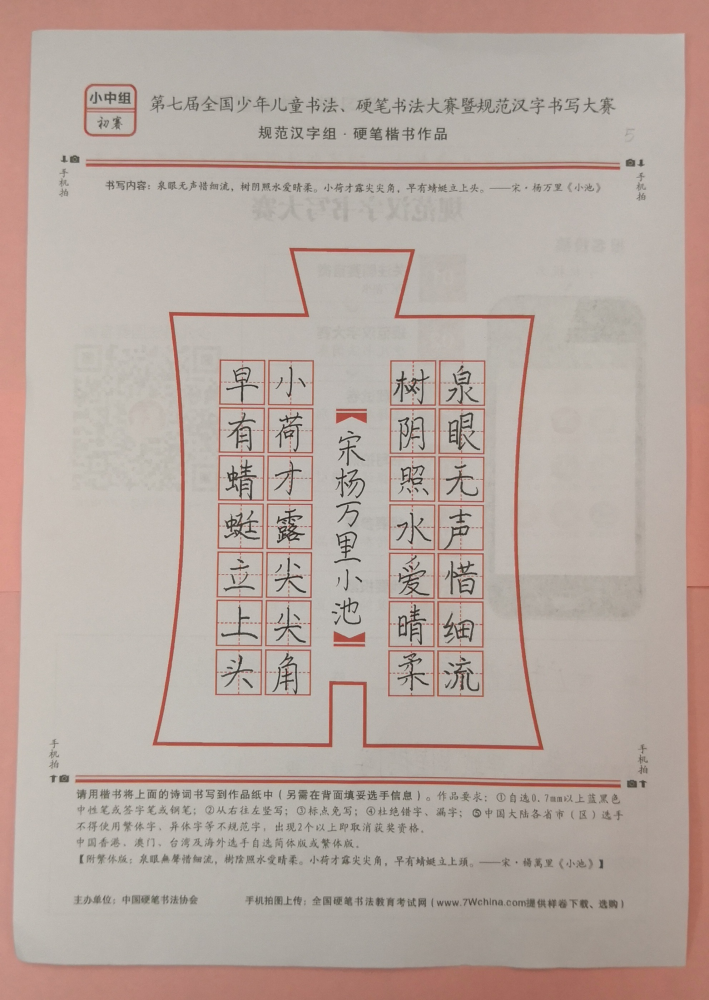 小中组
初赛
第七届全国少年儿童书法、硬笔书法大赛暨规范汉字书写大赛
规范汉字组·硬笔楷书作品
5
手机拍
手机拍
书写内容：泉眼无声惜细流，树阴照水爱晴柔。小荷才露尖尖角，早有蜻蜓立上头。——宋·杨万里《小池》
泉眼无声惜细流
树阴照水爱晴柔
宋杨万里小池
小荷才露尖尖角
早有蜻蜓立上头
手机拍
手机拍
请用楷书将上面的诗词书写到作品纸中（另需在背面填妥选手信息）。作品要求：①自选0.7mm以上蓝黑色
中性笔或签字笔或钢笔；②从右往左竖写；③标点免写；④杜绝错字、漏字；⑤中国大陆各省市（区）选手
不得使用繁体字、异体字等不规范字，出现2个以上即取消获奖资格。
中国香港、澳门、台湾及海外选手自选简体版或繁体版。
【附繁体版：泉眼無聲惜细流，樹陰照水愛晴柔。小荷才露尖尖角，早有蜻蜓立上頭。——宋·楊萬里《小池》】
主办单位：中国硬笔书法协会
手机拍图上传：全国硬笔书法教育考试网（www.7Wchina.com提供样卷下载、选购）